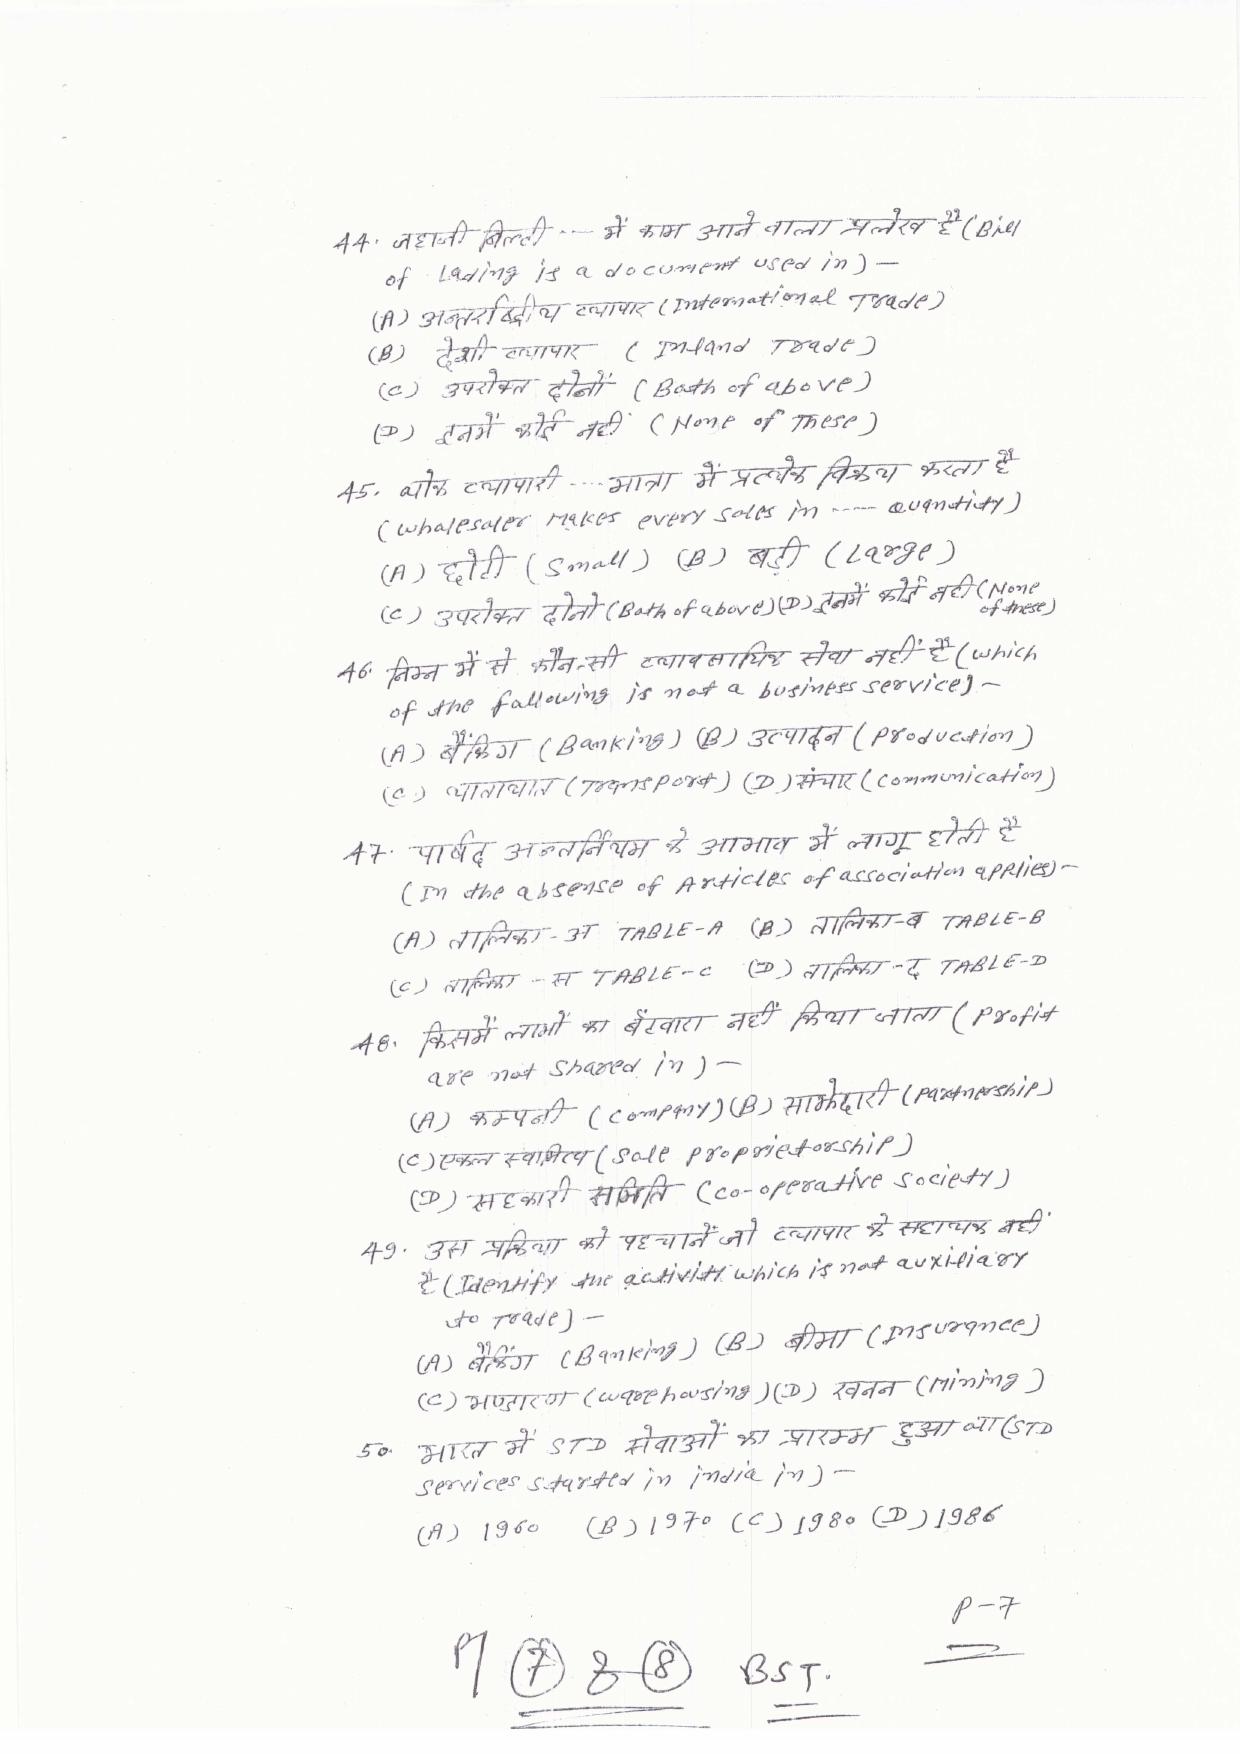 44. जहाजी बिल्टी .... में काम आने वाला प्रलेख है (Bill
of Lading is a document used in) —
(A) अन्तर्राष्ट्रीय व्यापार (International Trade)
(B) देशी व्यापार (Inland Trade)
(C) उपरोक्त दोनों (Both of above)
(D) इनमें कोई नहीं (None of These)
45. थोक व्यापारी .... मात्रा में प्रत्येक विक्रय करता है
(Wholesaler Makes every sales in ---- Quantity)
(A) छोटी (Small) (B) बड़ी (Large)
(C) उपरोक्त दोनो (Both of above) (D) इनमें कोई नहीं (None
of these)
46. निम्न में से कौन-सी व्यावसायिक सेवा नहीं है (which
of the following is not a business service) —
(A) बैंकिंग (Banking) (B) उत्पादन (Production)
(C) यातायात (Transport) (D) संचार (Communication)
47. पार्षद अन्तर्नियम के आभाव में लागू होती है
(In the absense of Articles of association applies) —
(A) तालिका-अ TABLE-A (B) तालिका-ब TABLE-B
(C) तालिका-स TABLE-C (D) तालिका-द TABLE-D
48. किसमें लाभों का बँटवारा नहीं किया जाता (Profit
are not Shared in) —
(A) कम्पनी (Company) (B) साझेदारी (Partnership)
(C) एकल स्वामित्व (Sole Proprietorship)
(D) सहकारी समिति (Co-operative Society)
49. उस प्रक्रिया को पहचानें जो व्यापार के सहायक नहीं
है (Identify the activity which is not auxiliary
to Trade) —
(A) बैंकिंग (Banking) (B) बीमा (Insurance)
(C) भण्डारण (Warehousing) (D) खनन (Mining)
50. भारत में STD सेवाओं का प्रारम्भ हुआ था (STD
services started in india in) —
(A) 1960 (B) 1970 (C) 1980 (D) 1986
P-7
7 & 8 BST.